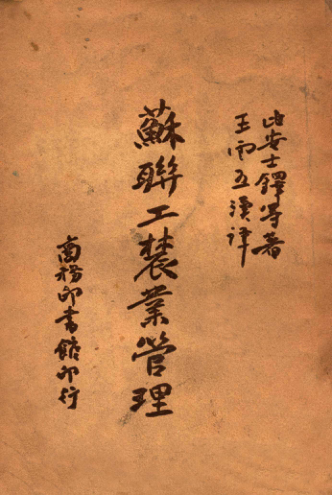 比安士鐸等著
王雲五演譯
蘇聯工農業管理
商務印書館印行